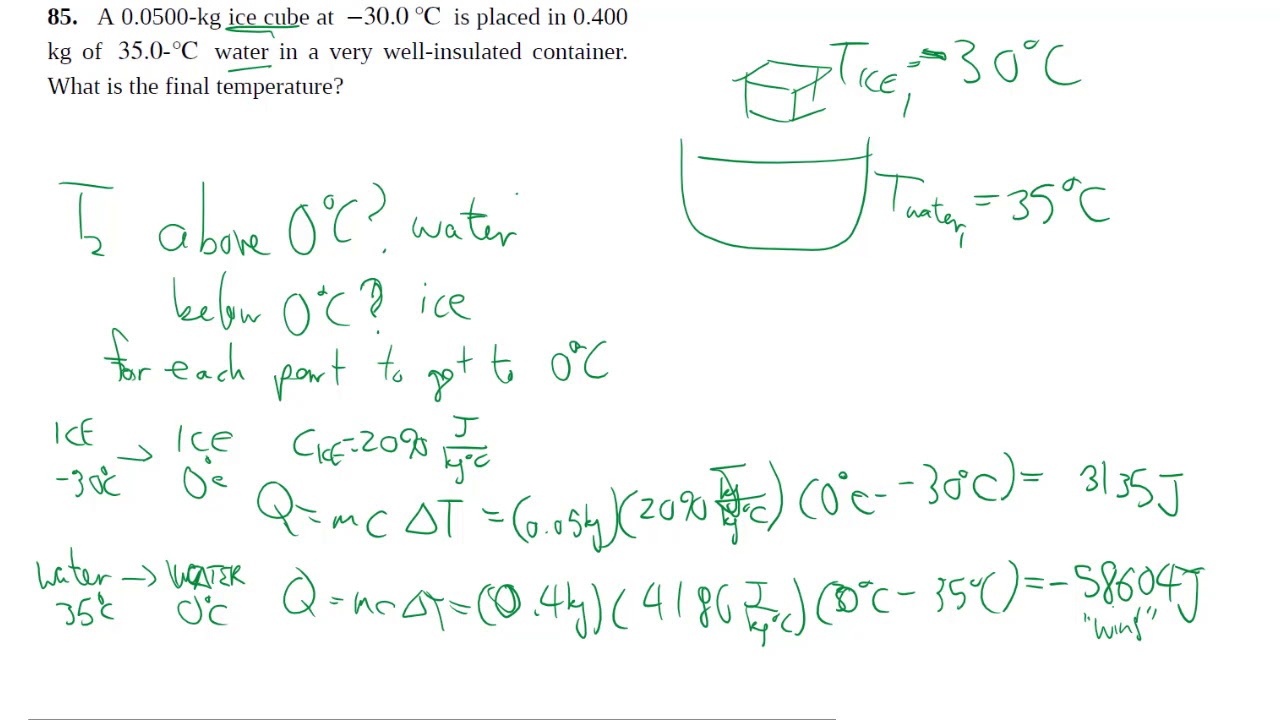 85. A 0.0500-kg ice cube at −30.0 °C is placed in 0.400
kg of 35.0-°C water in a very well-insulated container.
What is the final temperature?
T ICE, = -30°C
T water, = 35°C
T₂ above 0°C? water
below 0°C? ice
for each part to get to 0°C
ICE → Ice C ICE = 2090 J/kg°C
-30°C 0°C
Q = mcΔT = (0.05kg)(2090 J/kg°C)(0°C - -30°C) = 3135J
water → WATER Q = mcΔT = (0.4kg)(4186 J/kg°C)(0°C - 35°C) = -58604J
35°C 0°C "wins"